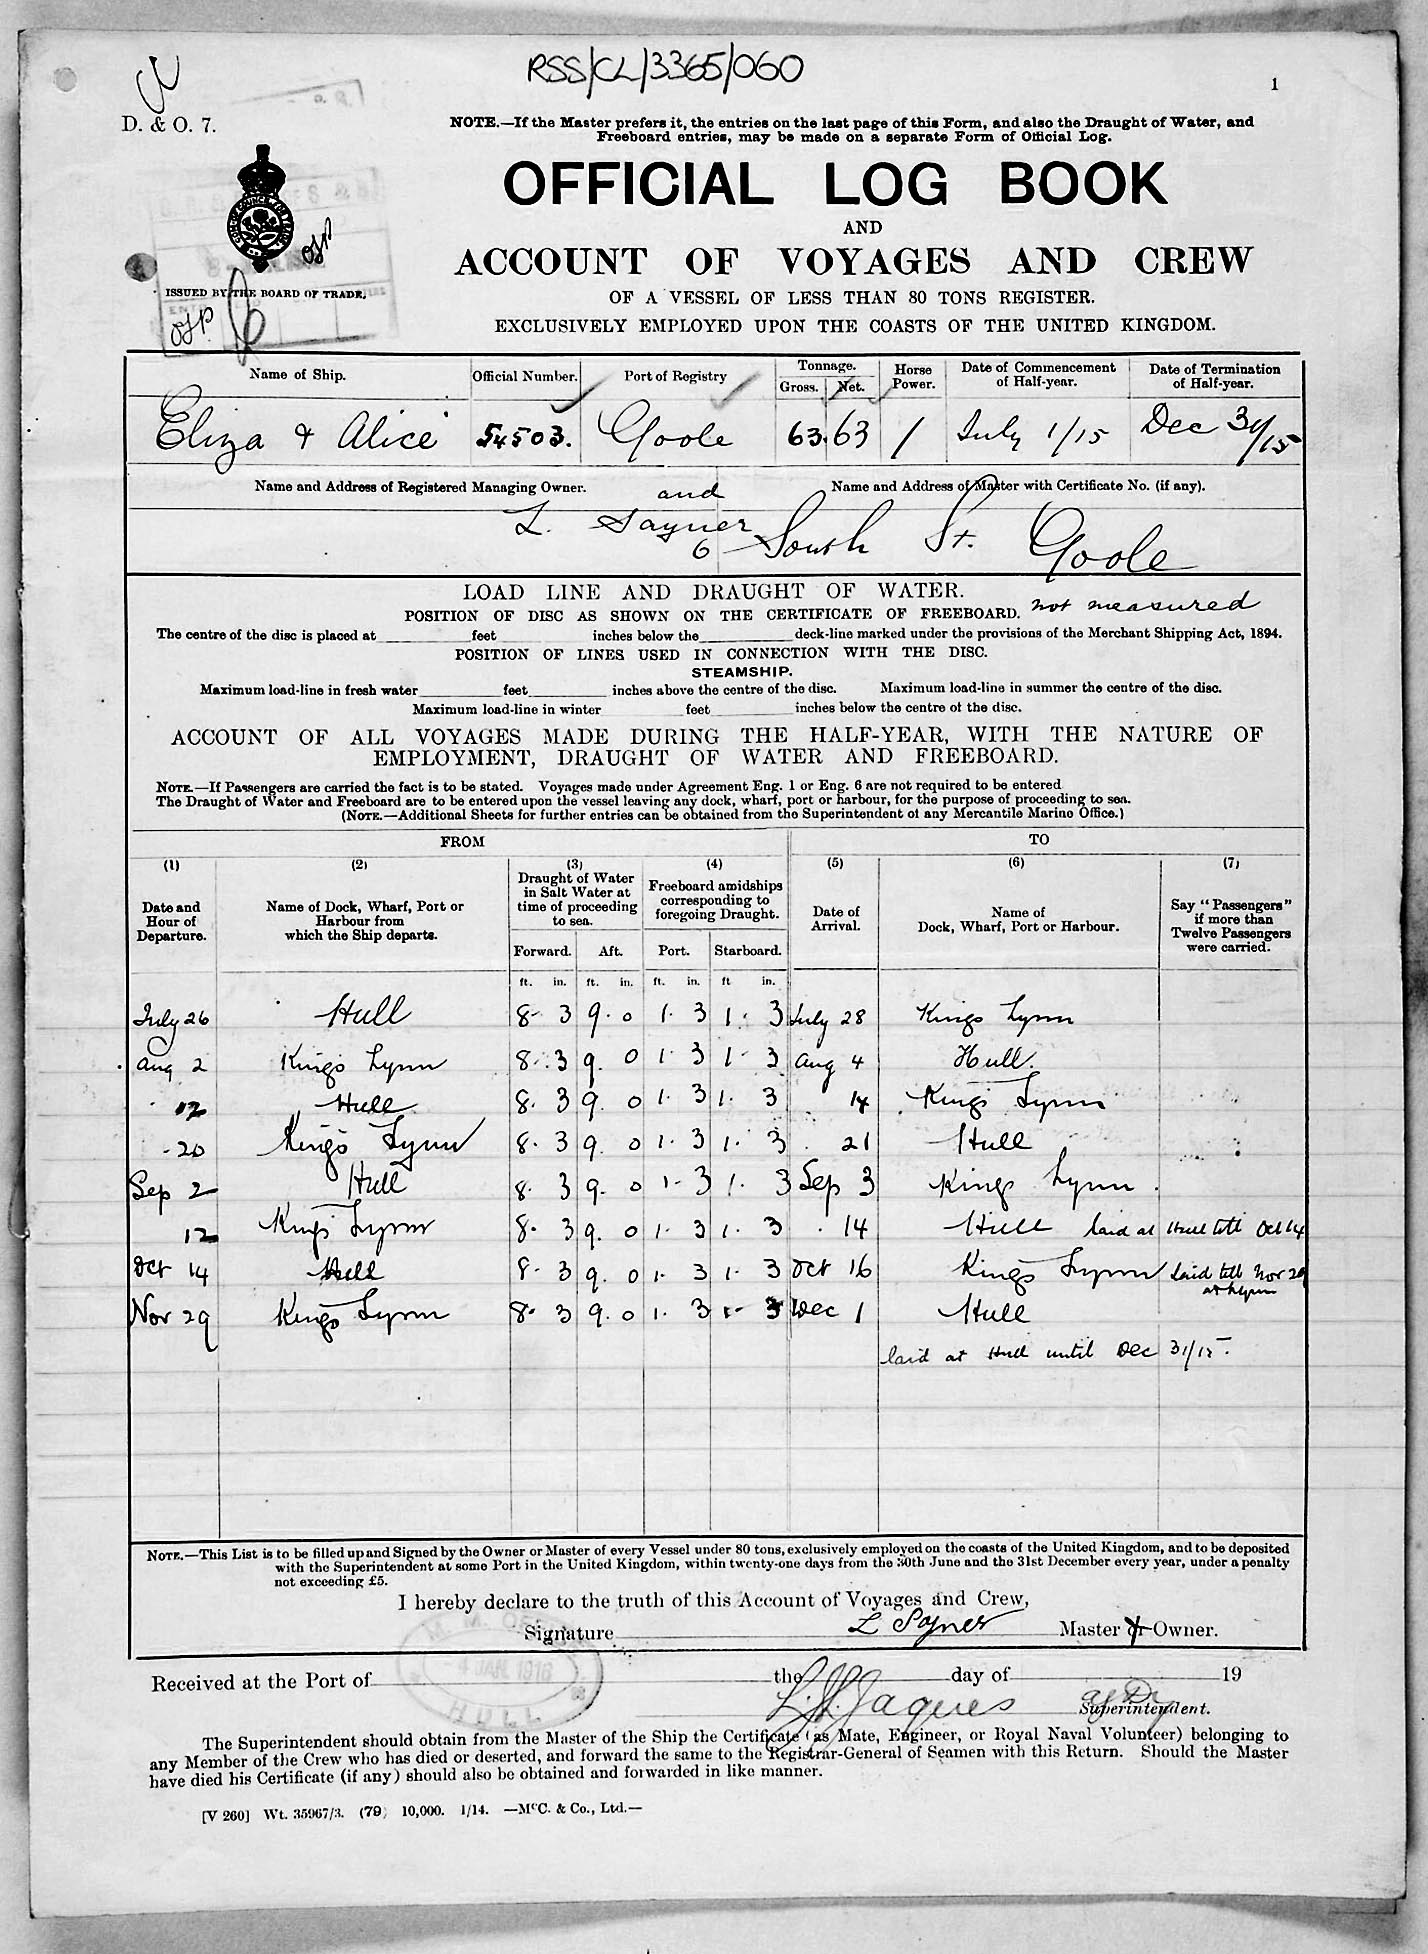 RSS/CL/3365/060
1
D. & O. 7.
NOTE.—If the Master prefers it, the entries on the last page of this Form, and also the Draught of Water, and
Freeboard entries, may be made on a separate Form of Official Log.
OFFICIAL LOG BOOK
AND
ACCOUNT OF VOYAGES AND CREW
OF A VESSEL OF LESS THAN 80 TONS REGISTER.
EXCLUSIVELY EMPLOYED UPON THE COASTS OF THE UNITED KINGDOM.
ISSUED BY THE BOARD OF TRADE.
Name of Ship. Official Number. Port of Registry Tonnage. Gross. Net. Horse Power. Date of Commencement of Half-year. Date of Termination of Half-year.
Eliza & Alice 54503. Goole 63. 63 / July 1/15 Dec 31/15
Name and Address of Registered Managing Owner. and Name and Address of Master with Certificate No. (if any).
L. Sayner
6 South St. Goole
LOAD LINE AND DRAUGHT OF WATER.
POSITION OF DISC AS SHOWN ON THE CERTIFICATE OF FREEBOARD. not measured
The centre of the disc is placed at feet inches below the deck-line marked under the provisions of the Merchant Shipping Act, 1894.
POSITION OF LINES USED IN CONNECTION WITH THE DISC.
STEAMSHIP.
Maximum load-line in fresh water feet inches above the centre of the disc. Maximum load-line in summer the centre of the disc.
Maximum load-line in winter feet inches below the centre of the disc.
ACCOUNT OF ALL VOYAGES MADE DURING THE HALF-YEAR, WITH THE NATURE OF
EMPLOYMENT, DRAUGHT OF WATER AND FREEBOARD.
NOTE.—If Passengers are carried the fact is to be stated. Voyages made under Agreement Eng. 1 or Eng. 6 are not required to be entered
The Draught of Water and Freeboard are to be entered upon the vessel leaving any dock, wharf, port or harbour, for the purpose of proceeding to sea.
(NOTE.—Additional Sheets for further entries can be obtained from the Superintendent of any Mercantile Marine Office.)
FROM TO
(1) (2) (3) (4) (5) (6) (7)
Date and Hour of Departure. Name of Dock, Wharf, Port or Harbour from which the Ship departs. Draught of Water in Salt Water at time of proceeding to sea. Freeboard amidships corresponding to foregoing Draught. Date of Arrival. Name of Dock, Wharf, Port or Harbour. Say "Passengers" if more than Twelve Passengers were carried.
Forward. Aft. Port. Starboard.
ft. in. ft. in. ft. in. ft in.
July 26 Hull 8. 3 9. 0 1. 3 1. 3 July 28 Kings Lynn
Aug 2 Kings Lynn 8. 3 9. 0 1. 3 1. 3 Aug 4 Hull.
12 Hull 8. 3 9. 0 1. 3 1. 3 14 Kings Lynn
20 Kings Lynn 8. 3 9. 0 1. 3 1. 3 21 Hull
Sep 2 Hull 8. 3 9. 0 1. 3 1. 3 Sep 3 Kings Lynn.
12 Kings Lynn 8. 3 9. 0 1. 3 1. 3 14 Hull laid at Hull till Oct 14
Oct 14 Hull 8. 3 9. 0 1. 3 1. 3 Oct 16 Kings Lynn laid till Nov 29
at Lynn
Nov 29 Kings Lynn 8. 3 9. 0 1. 3 1. 3 Dec 1 Hull
laid at Hull until Dec 31/15.
NOTE.—This List is to be filled up and Signed by the Owner or Master of every Vessel under 80 tons, exclusively employed on the coasts of the United Kingdom, and to be deposited
with the Superintendent at some Port in the United Kingdom, within twenty-one days from the 30th June and the 31st December every year, under a penalty
not exceeding £5.
I hereby declare to the truth of this Account of Voyages and Crew,
Signature L Sayner Master & Owner.
M. M. OFFICE
4 JAN. 1916
HULL
Received at the Port of the day of 19
L. H. Jaques Superintendent.
The Superintendent should obtain from the Master of the Ship the Certificate (as Mate, Engineer, or Royal Naval Volunteer) belonging to
any Member of the Crew who has died or deserted, and forward the same to the Registrar-General of Seamen with this Return. Should the Master
have died his Certificate (if any) should also be obtained and forwarded in like manner.
[V 260] Wt. 35967/3. (79) 10,000. 1/14. —McC. & Co., Ltd.—